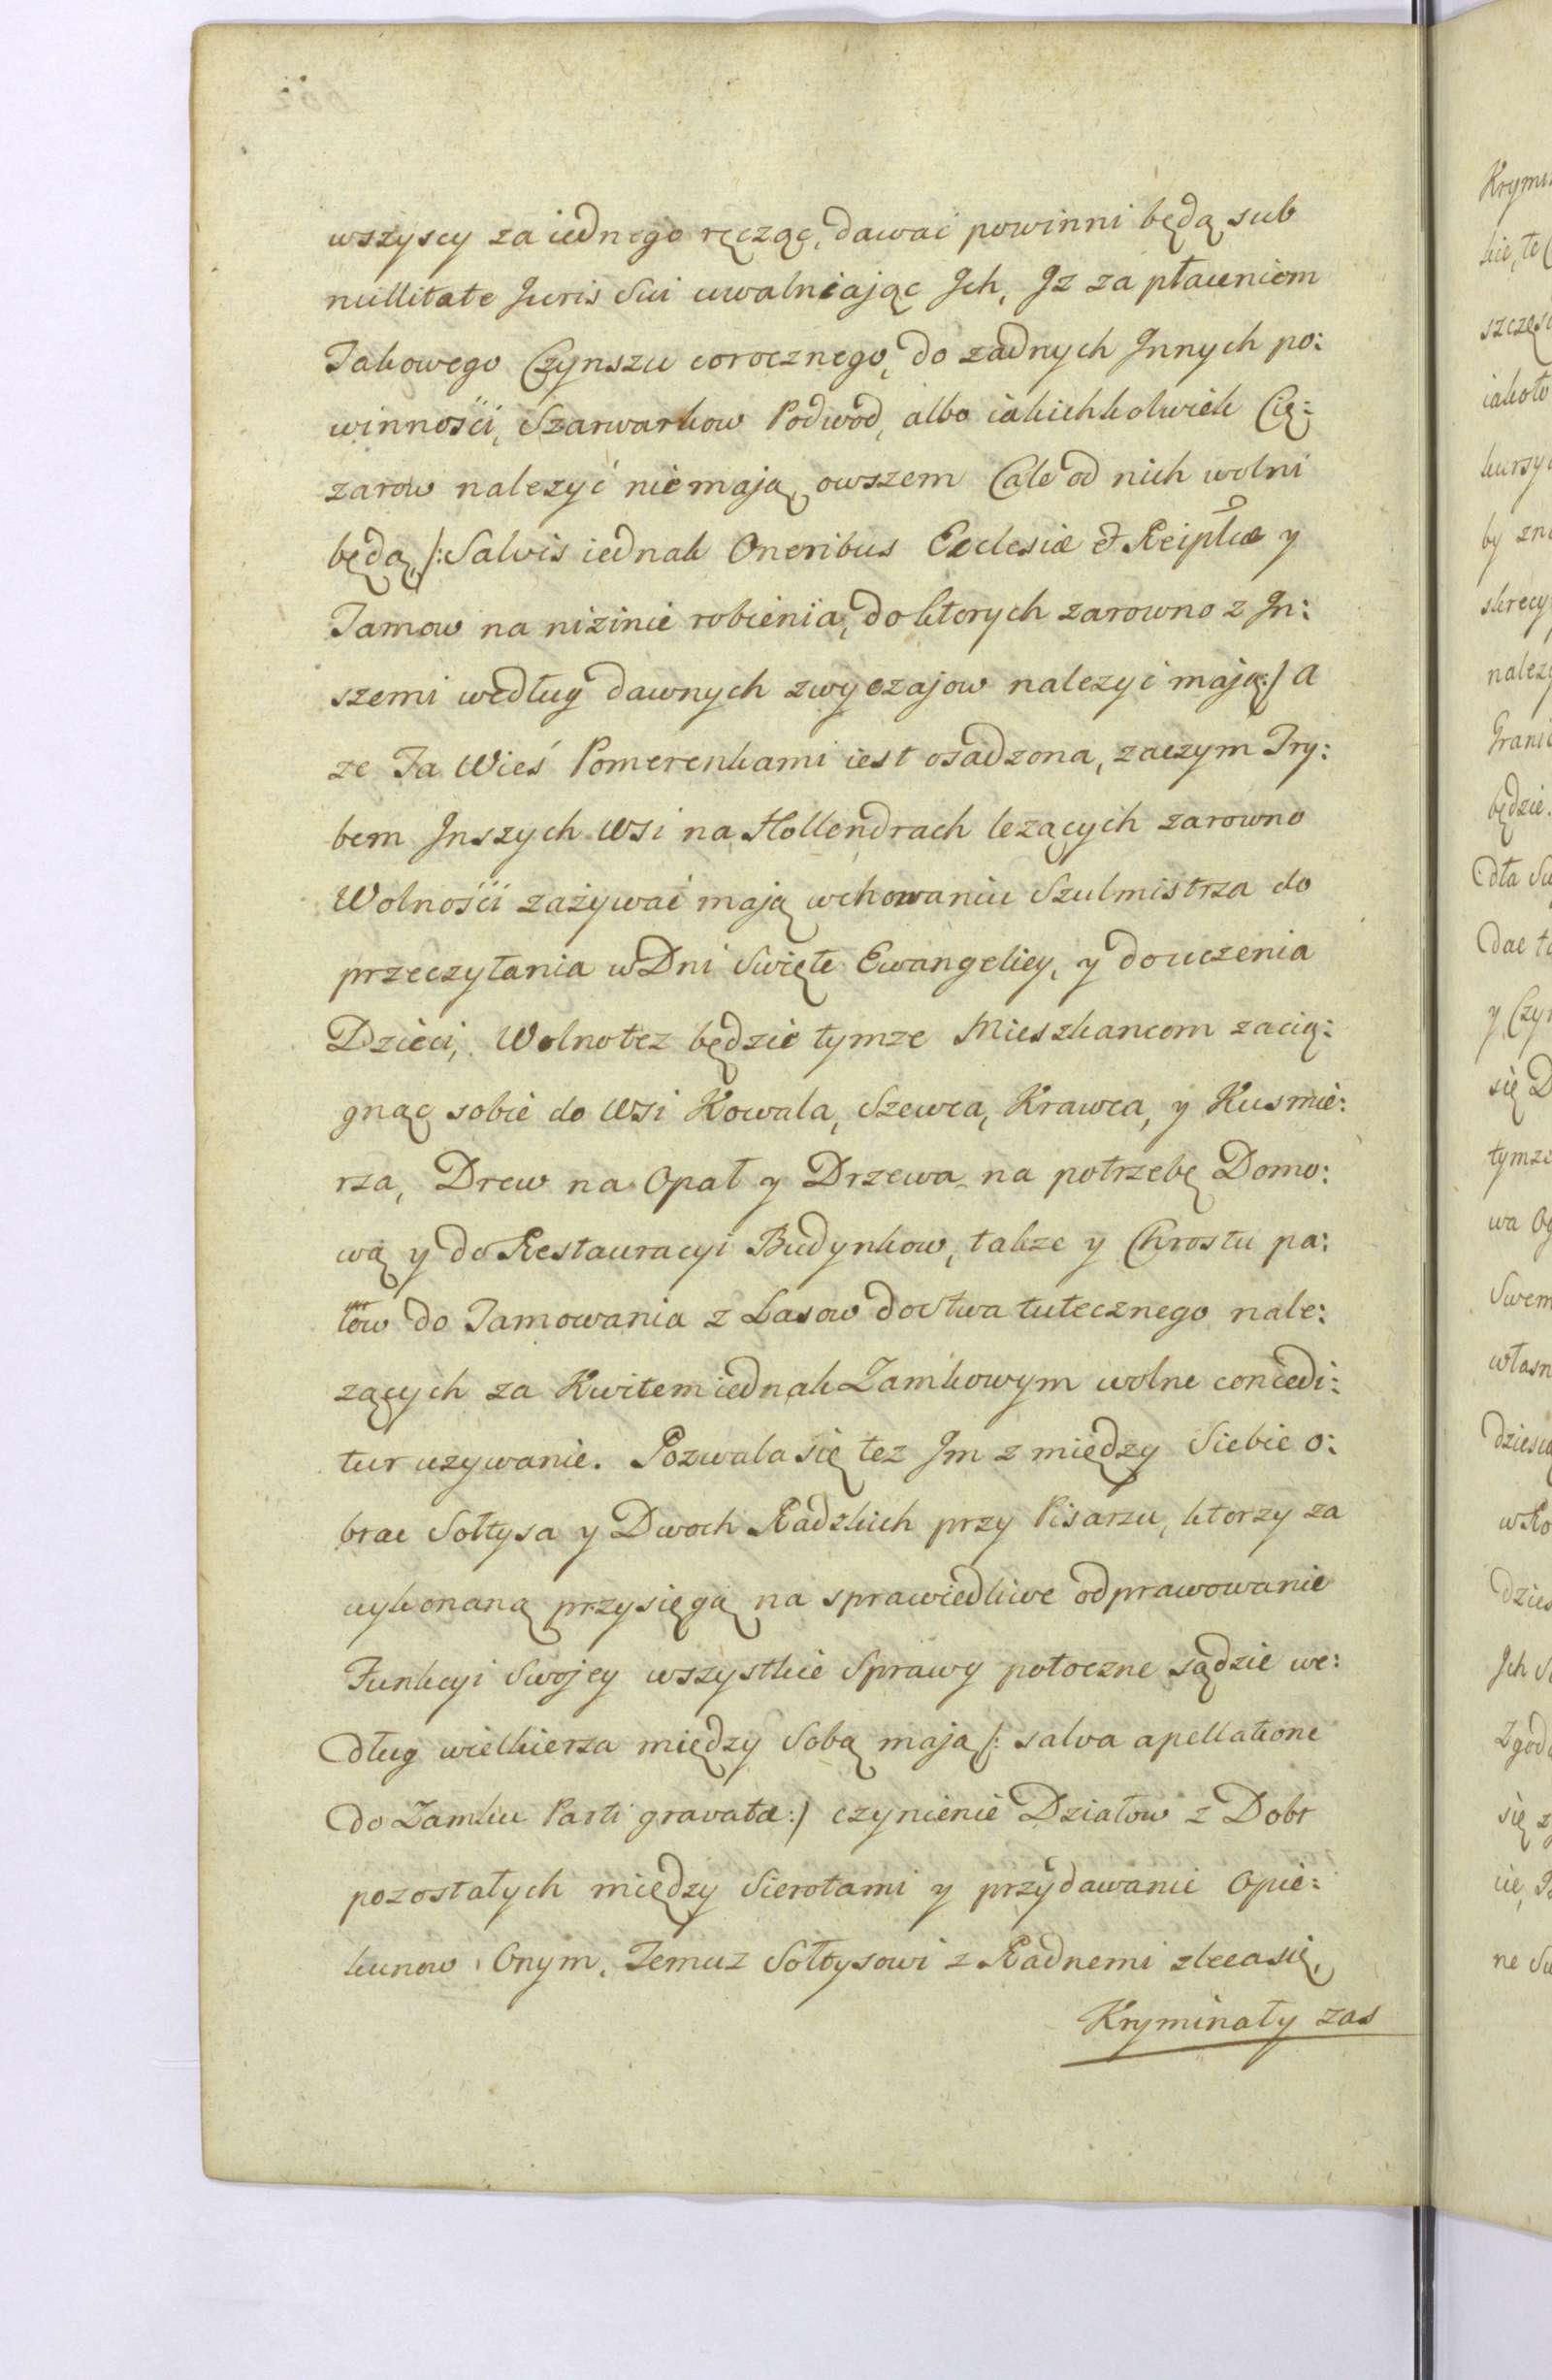 wszyscy za iednego ręcząc, dawać powinni będą sub
nullitate Juris Sui uwalniając Jch, Jz za płaceniem
Takowego Czynszu corocznego, do zadnych Jnnych po:
winności, Szarwarkow Podwod, albo iakichkolwiek Cię:
zarow nalezyć niemają, owszem Cale od nich wolni
będą, /: Salvis iednak Oneribus Ecclesiæ & Reiplcæ y
Tamow na nizinie robienia, do ktorych zarowno z Jn:
szemi według dawnych zwyczajow nalezyć mają :/ A
ze Ta Wieś Pomerenkami iest osadzona, zaczym Try:
bem Jnszych Wsi na Hollendrach lezących zarowno
Wolności zażywać mają wchowaniu Szulmistrza do
przeczytania w Dni Swięte Ewangeliey, y do uczenia
Dzieci, Wolnotez będzie tymze Mieszkancom zacią:
gnąc sobie do Wsi Kowala, Szewca, Krawca, y Kusmie:
rza, Drew na Opał y Drzewa na potrzebę Domo:
wą y do Restauracyi Budynkow, takze y Chrostu pa:
low do Tamowania z Lasow doStwa tutecznego nale:
zących za Kwitem iednak Zamkowym wolne concedi:
tur uzywanie. Pozwala się tez Jm z między Siebie o:
brac Sołtysa y Dwoch Radzkich przy Pisarzu, ktorzy za
wykonaną przysięgą na sprawiedliwe odprawowanie
Funkcyi Swojey wszystkie Sprawy potoczne sądzic we:
dług wielkierza między Sobą mają /: salva apellatione
do Zamku Parti gravatæ :/ czynienie Działow z Dobr
pozostałych między Sierotami y przydawanie Opie:
kunow Onym, Temuz Sołtysowi z Radnemi zleca się,
Kryminały zas